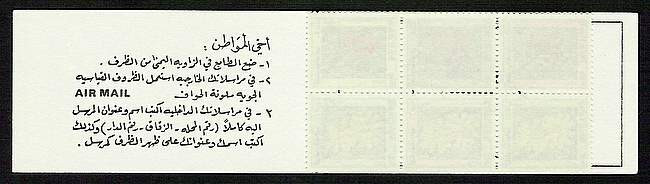 أخي المواطن :
١- ضع الطابع في الزاويه اليمنى من الظرف .
٢- في مراسلاتك الخارجيه استعمل الظروف القياسيه
الجويه ملونة الحواف AIR MAIL
٣- في مراسلاتك الداخليه اكتب اسم وعنوان المرسل
اليه كاملاً ( رقم المحله - الزقاق - رقم الدار ) وكذلك
اكتب اسمك وعنوانك على ظهر الظرف كمرسل .